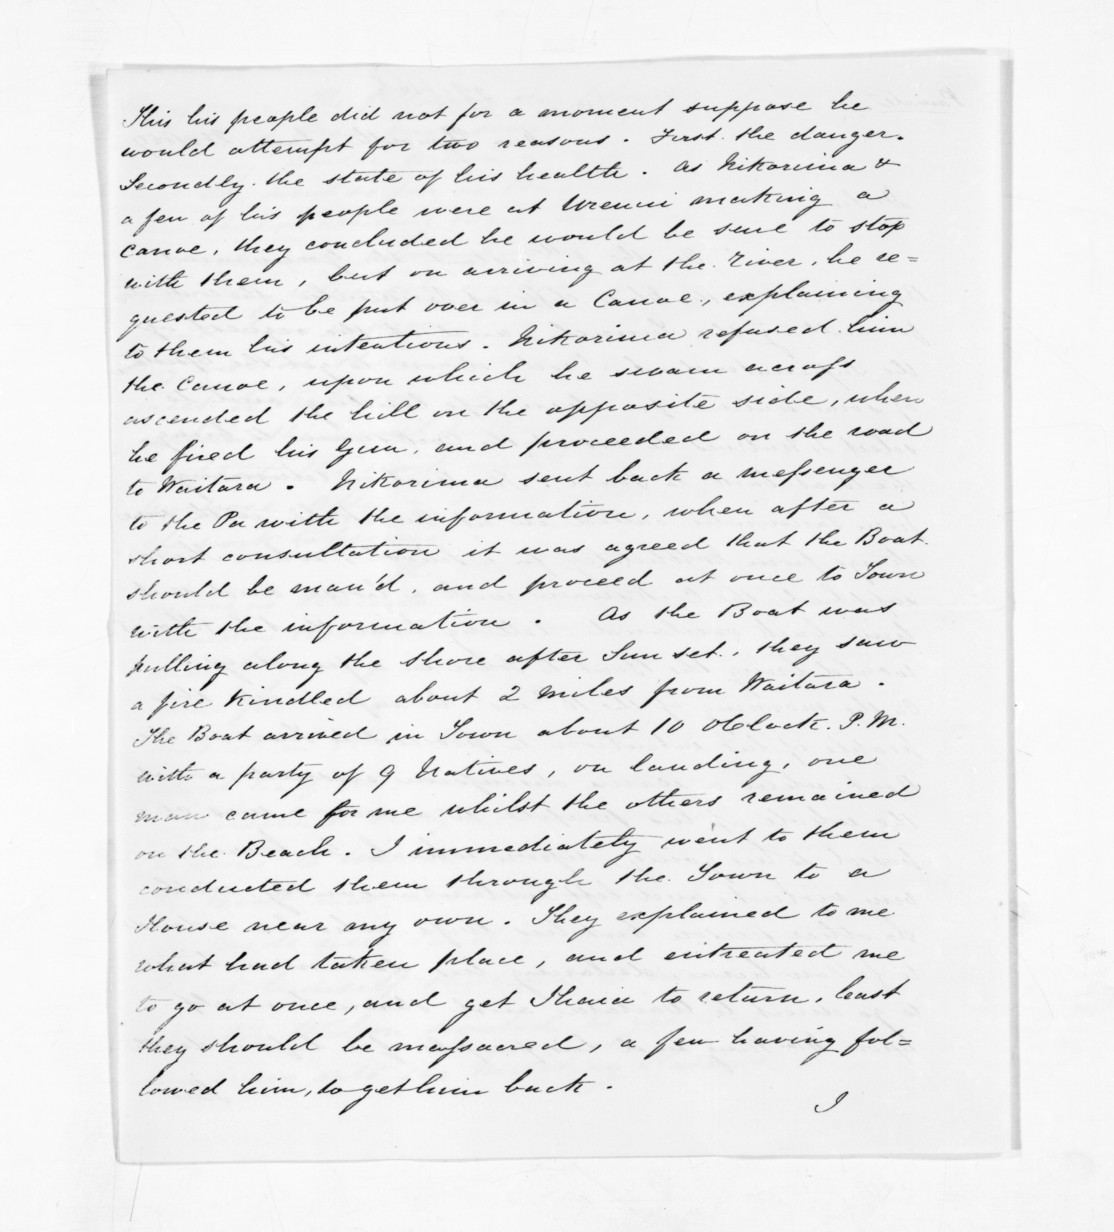 This his people did not for a moment suppose he
would attempt for two reasons. First. the danger.
Secondly. the state of his health. As Nikorima &
a few of his people were at Urenui making a
canoe, they concluded he would be sure to stop
with them, but on arriving at the River, he re=
quested to be put over in a Canoe, explaining
to them his intentions. Nikorima refused him
the Canoe, upon which he swam across
ascended the hill on the opposite side, when
he fired his Gun, and proceeded on the road
to Waitara. Nikorima sent back a messenger
to the Pa with the information, when after a
short consultation it was agreed that the Boat
should be man'd, and proceed at once to Town
with the information. As the Boat was
pulling along the shore after Sun set, they saw
a fire kindled about 2 miles from Waitara.
The Boat arrived in Town about 10 OClock. P.M.
with a party of 9 Natives, on landing, one
man came for me whilst the others remained
on the Beach. I immediately went to them
conducted them through the Town to a
House near my own. They explained to me
what had taken place, and entreated me
to go at once, and get Ihaia to return, least
they should be massacred, a few having fol=
lowed him, to get him back.
I